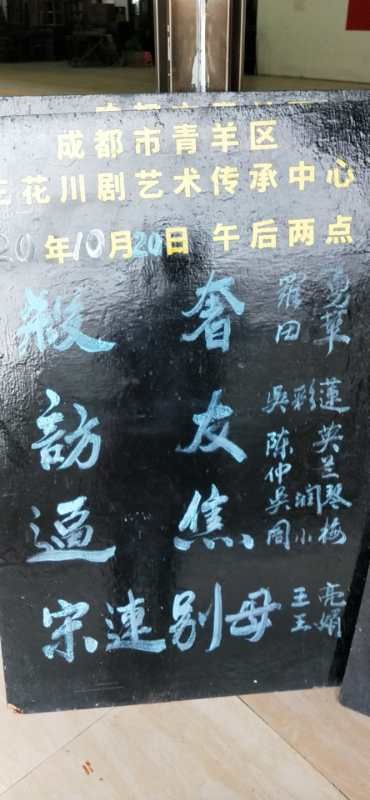 成都市青羊区
三花川剧艺术传承中心
20年10月20日 午后两点
殺 奢 羅 勇
田 草
訪 友 吳彩蓮
陈 英
仲 兰
逼 焦 吳润琴
周小梅
宋連别母 王 亮
王 娟